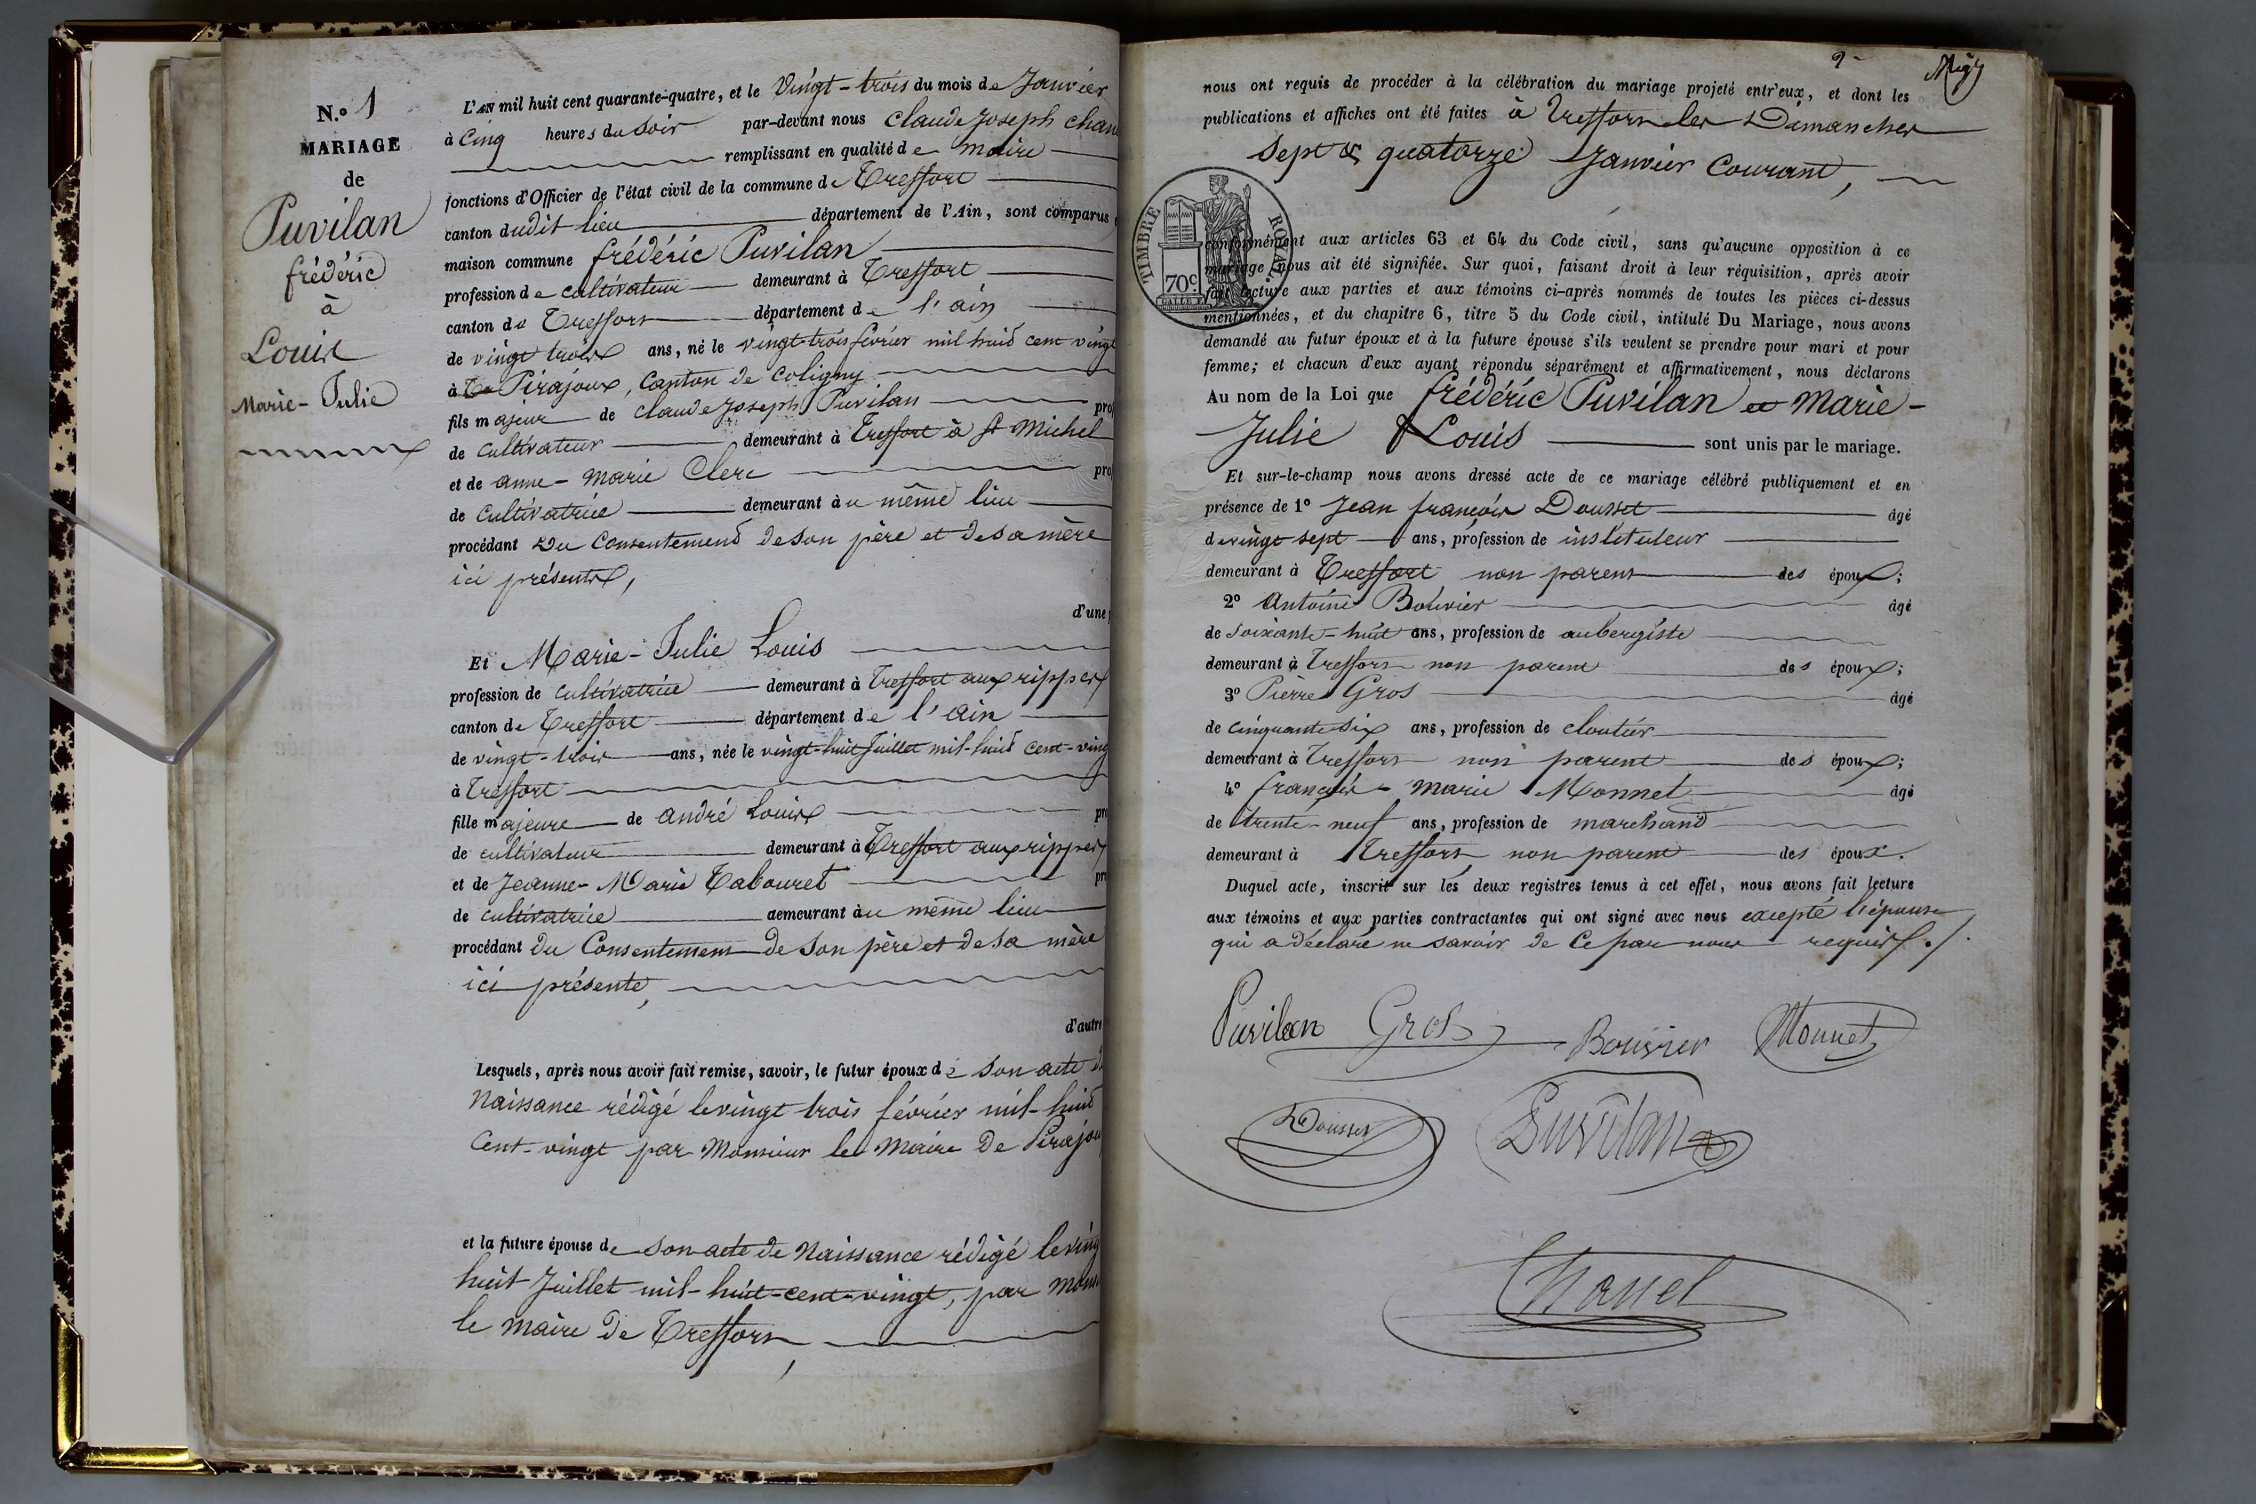 N.° 1
MARIAGE
de
Puvilan
frédéric
à
Louis
Marie-Julie
L'AN mil huit cent quarante-quatre, et le Vingt-trois du mois de Janvier
à Cinq heures du Soir par-devant nous Claude Joseph
remplissant en qualité de maire
fonctions d'Officier de l'état civil de la commune de Treffort
canton dudit lieu département de l'Ain, sont comparus
maison commune frédéric Puvilan
profession de cultivateur demeurant à Treffort
canton de Treffort département de l'ain
de vingt trois ans, né le vingt-trois février mil huit cent vingt
à Pirajoux, Canton de Coligny
fils majeur de Claude Joseph Puvilan
de Cultivateur demeurant à Treffort à St Michel
et de anne-Marie Clerc
de Cultivatrice demeurant au même lieu
procédant Du Consentement de son père et de sa mère
ici présents,
d'une
Et Marie-Julie Louis
profession de Cultivatrice demeurant à Treffort aux rippes
canton de Treffort département de l'ain
de vingt-trois ans, née le vingt-huit Juillet mil-huit cent-ving
à Treffort
fille majeure de andré Louis
de cultivateur demeurant à Treffort aux rippes
et de Jeanne-Marie Tabouret
de cultivatrice demeurant au même lieu
procédant du Consentement de son père et de sa mère
ici présente,
d'autre
Lesquels, après nous avoir fait remise, savoir, le futur époux de son acte de
Naissance rédigé le vingt trois février mil-huit
Cent-vingt par Monsieur le Maire de Pirajoux
et la future épouse de son acte de Naissance rédigé le ving
huit Juillet mil-huit-cent-vingt, par
le Maire de Treffort,
2
nous ont requis de procéder à la célébration du mariage projeté entr'eux, et dont les
publications et affiches ont été faites à Treffort les Dimanches
Sept & quatorze Janvier Courant,
TIMBRE ROYAL
70c
conformément aux articles 63 et 64 du Code civil, sans qu'aucune opposition à ce
mariage nous ait été signifiée. Sur quoi, faisant droit à leur réquisition, après avoir
fait lecture aux parties et aux témoins ci-après nommés de toutes les pièces ci-dessus
mentionnées, et du chapitre 6, titre 5 du Code civil, intitulé Du Mariage, nous avons
demandé au futur époux et à la future épouse s'ils veulent se prendre pour mari et pour
femme; et chacun d'eux ayant répondu séparément et affirmativement, nous déclarons
Au nom de la Loi que frédéric Puvilan et Marie-
Julie Louis sont unis par le mariage.
Et sur-le-champ nous avons dressé acte de ce mariage célébré publiquement et en
présence de 1° Jean françois Dousset âgé
de vingt sept ans, profession de instituteur
demeurant à Treffort non parent des époux;
2° Antoine Bouvier âgé
de soixante-huit ans, profession de aubergiste
demeurant à Treffort non parent des époux;
3° Pierre Gros âgé
de cinquante six ans, profession de cloutier
demeurant à Treffort non parent des époux;
4° françois-marie Monnet âgé
de trente-neuf ans, profession de marchand
demeurant à Treffort non parent des époux.
Duquel acte, inscrit sur les deux registres tenus à cet effet, nous avons fait lecture
aux témoins et aux parties contractantes qui ont signé avec nous excepté l'épouse
qui a déclaré ne savoir de ce par nous requis ./.
Puvilan Gros Bouvier Monnet
Dousset Puvilan